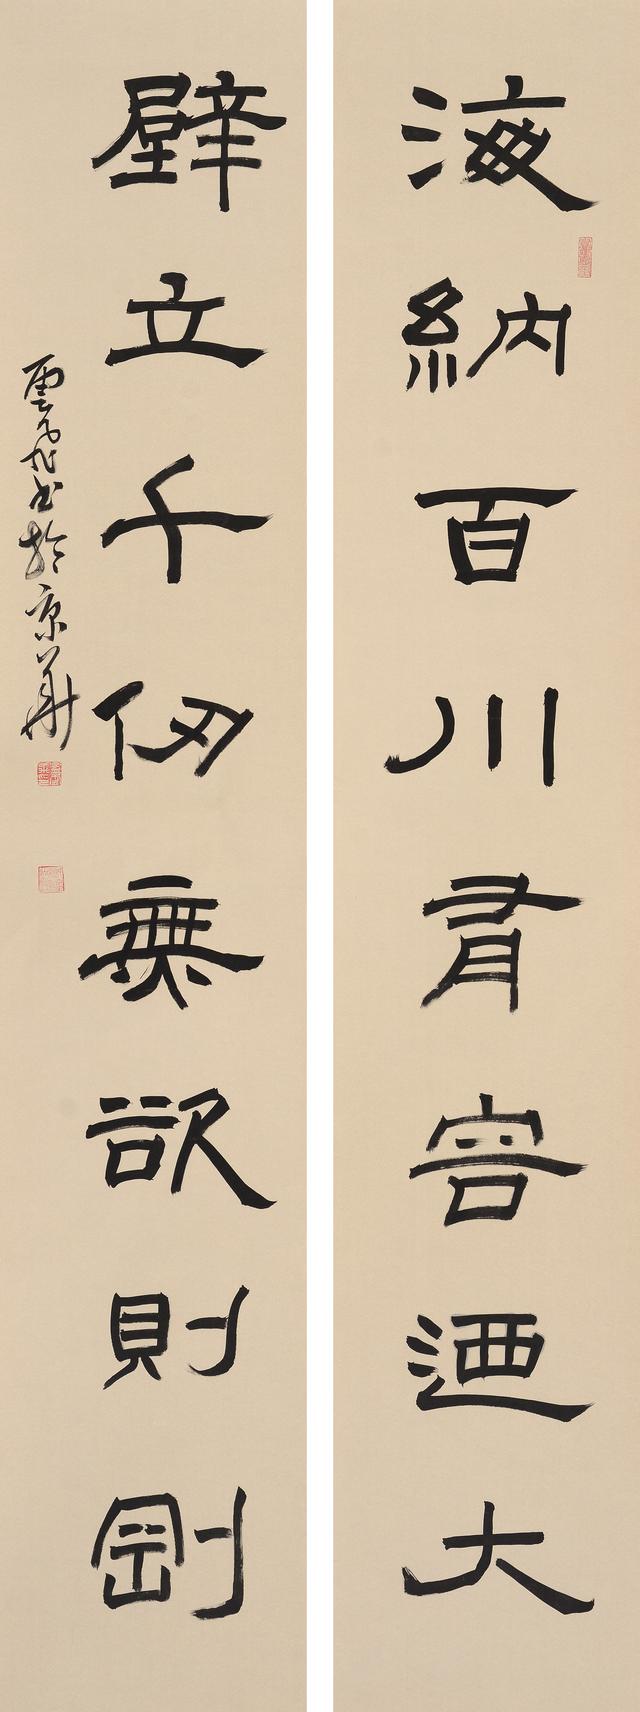 海納百川有容迺大
壁立千仞無欲則剛
雲书於京華